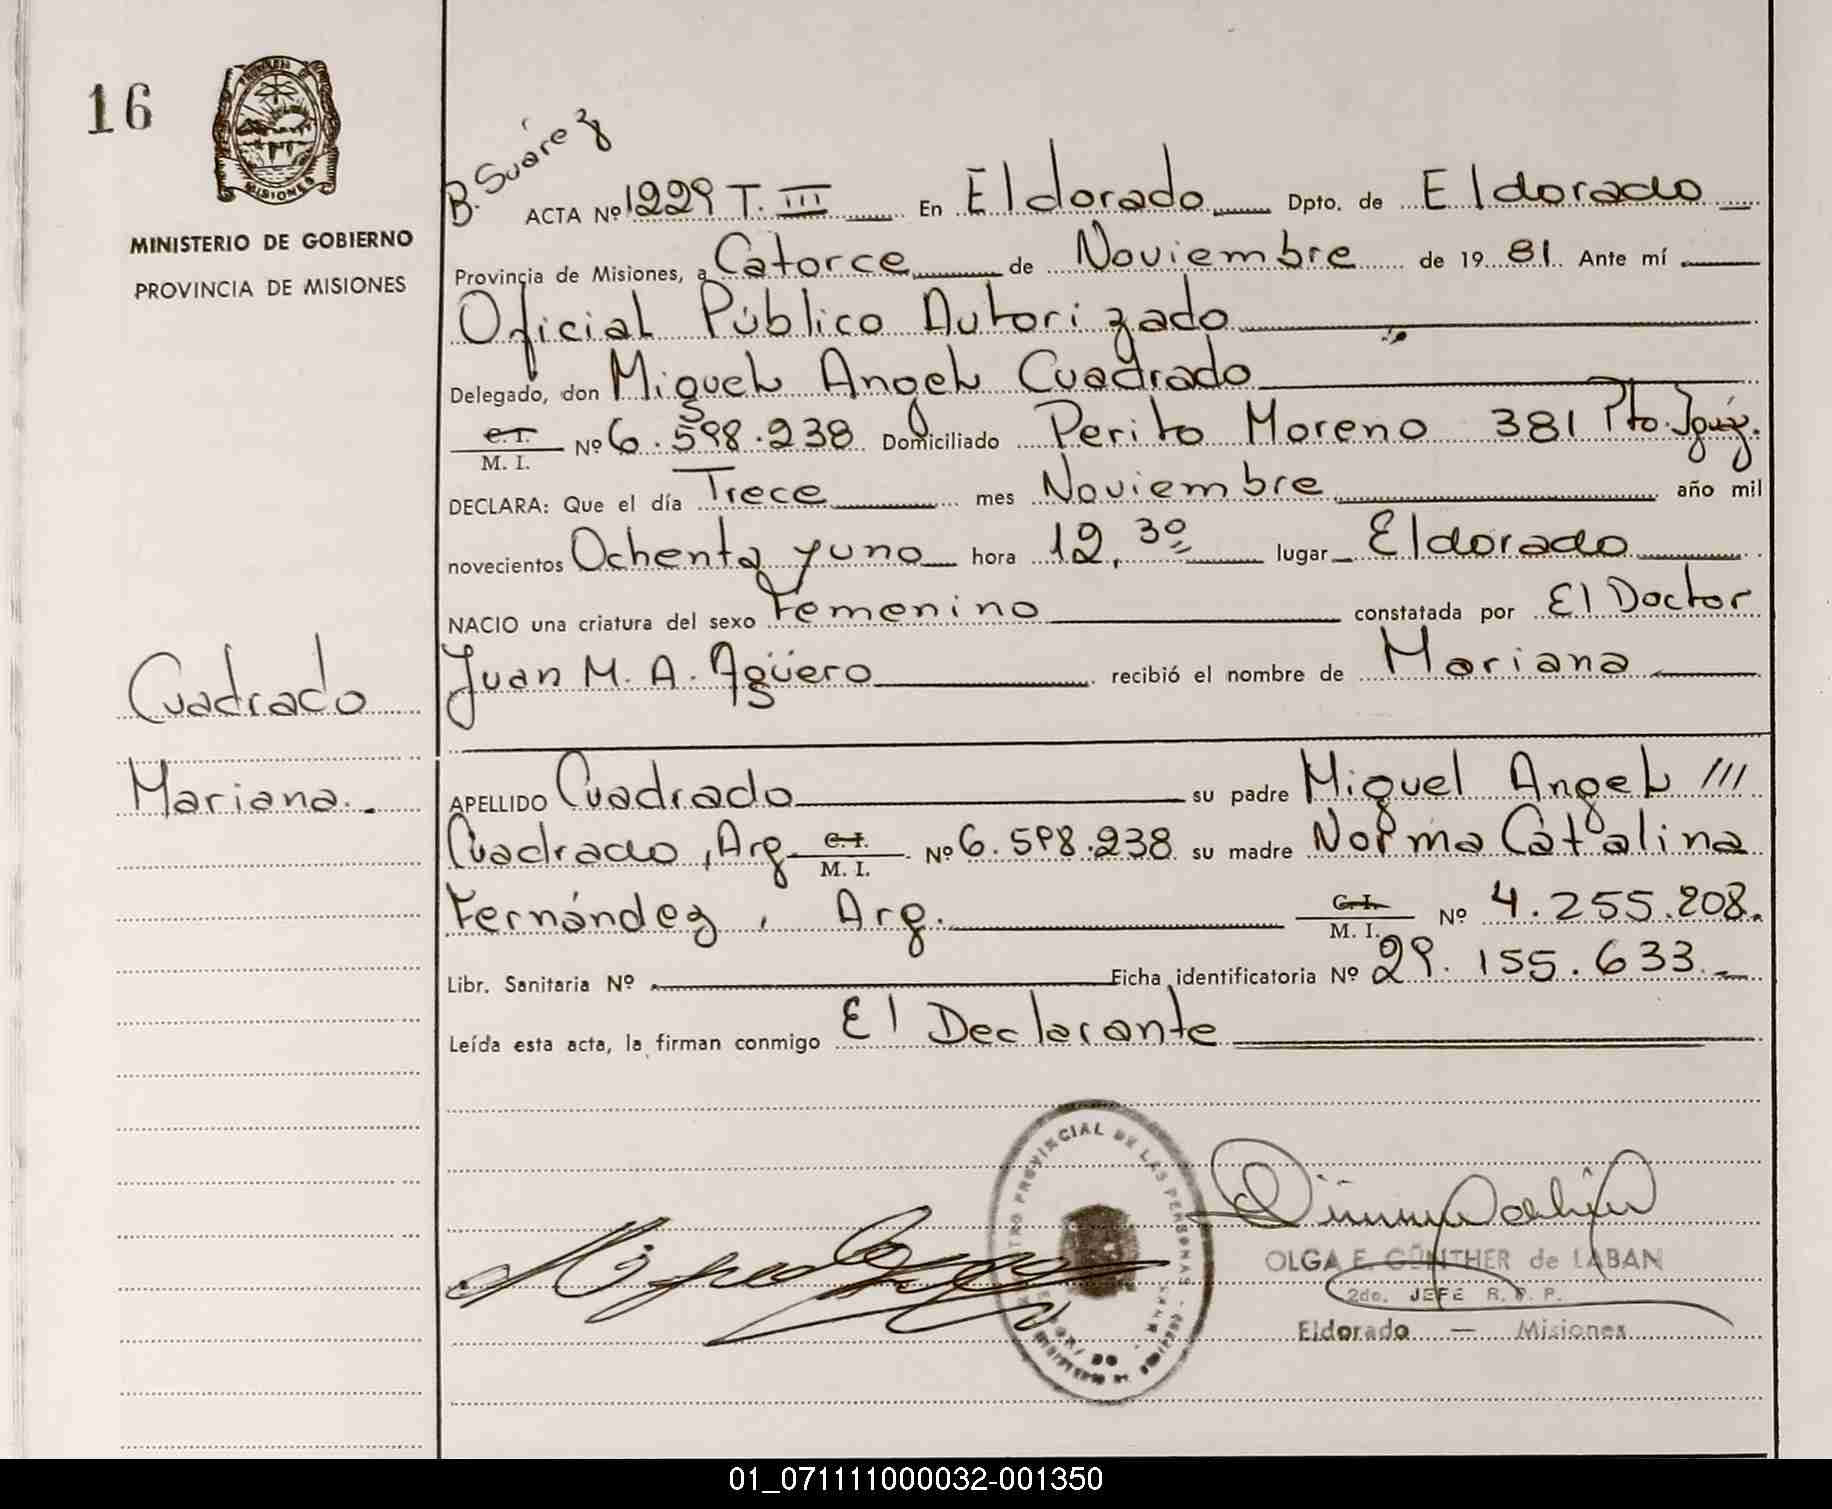 16
MISIONES
MINISTERIO DE GOBIERNO
PROVINCIA DE MISIONES
B. Suárez
ACTA Nº 1229 T. III En Eldorado Dpto. de Eldorado
Provincia de Misiones, a Catorce de Noviembre de 19 81 Ante mí
Oficial Público Autorizado
Delegado, don Miguel Angel Cuadrado
C.I. M. I. Nº 6.598.238 Domiciliado Perito Moreno 381 Pto. Iguz.
DECLARA: Que el día Trece mes Noviembre año mil
novecientos Ochenta y uno hora 12,30 lugar Eldorado
NACIO una criatura del sexo Femenino constatada por El Doctor
Juan M. A. Agüero recibió el nombre de Mariana
Cuadrado
Mariana.
APELLIDO Cuadrado su padre Miguel Angel ///
Cuadrado, Arg. C.I. M. I. Nº 6.598.238 su madre Norma Catalina
Fernández, Arg. C.I. M. I. Nº 4.255.208.
Libr. Sanitaria Nº Ficha identificatoria Nº 29.155.633
Leída esta acta, la firman conmigo El Declarante
PROVINCIAL DE LAS PERSONAS
OLGA E. GÜNTHER de LABAN
2do. JEFE R. P. P.
Eldorado — Misiones
01_071111000032-001350